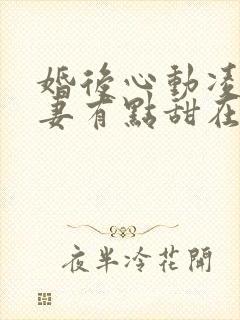 婚後心動凌
妻有點甜在
夜半冷花開